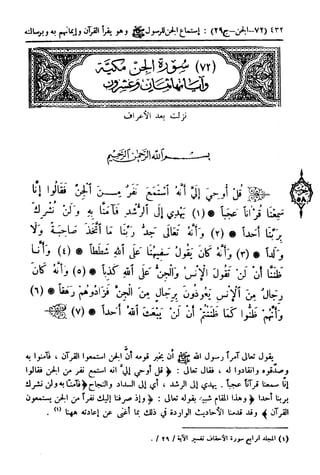 ٤٣٢ (٧٢-الجن-ج٢٩) : إستماع الجن للرسول ﷺ وهو يقرأ القرآن وإيمانهم به وبرسالته
(٧٢) سورة الجن مكية
وآياتها ثمان وعشرون
نزلت بعد الأعراف
بسم الله الرحمن الرحيم
قُلْ أُوحِيَ إِلَيَّ أَنَّهُ اسْتَمَعَ نَفَرٌ مِنَ الْجِنِّ فَقَالُوا إِنَّا
سَمِعْنَا قُرْآنًا عَجَبًا * (١) يَهْدِي إِلَى الرُّشْدِ فَآمَنَّا بِهِ وَلَنْ نُشْرِكَ
بِرَبِّنَا أَحَدًا * (٢) وَأَنَّهُ تَعَالَى جَدُّ رَبِّنَا مَا اتَّخَذَ صَاحِبَةً وَلَا
وَلَدًا * (٣) وَأَنَّهُ كَانَ يَقُولُ سَفِيهُنَا عَلَى اللَّهِ شَطَطًا * (٤) وَأَنَّا
ظَنَنَّا أَنْ لَنْ تَقُولَ الْإِنْسُ وَالْجِنُّ عَلَى اللَّهِ كَذِبًا * (٥) وَأَنَّهُ كَانَ
رِجَالٌ مِنَ الْإِنْسِ يَعُوذُونَ بِرِجَالٍ مِنَ الْجِنِّ فَزَادُوهُمْ رَهَقًا * (٦)
وَأَنَّهُمْ ظَنُّوا كَمَا ظَنَنْتُمْ أَنْ لَنْ يَبْعَثَ اللَّهُ أَحَدًا * (٧)
يقول تعالى آمراً رسول الله ﷺ أن يخبر قومه أنَّ الجن استمعوا القرآن ، فآمنوا به
وصدَّقوه وانقادوا له ، فقال تعالى : ﴿ قل أوحي إليَّ انه استمع نفر من الجن فقالوا
إنا سمعنا قرآناً عجباً . يهدي إلى الرشد ، أي إلى السداد والنجاح ﴿فآمنَّا به ولن نشرك
بربنا أحدا ﴾ وهذا المقام شبيه بقوله تعالى : ﴿ وإذ صرفنا إليك نفراً من الجن يستمعون
القرآن ﴾ وقد قدمنا الأحاديث الواردة في ذلك بما أغنى عن إعادته ههنا (١) .
(١) المجلد الرابع سورة الأحقاف تفسير الآية / ٢٩ / .